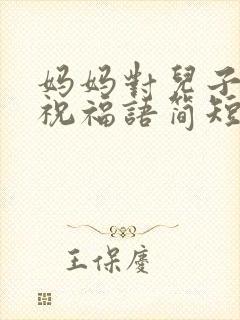 妈妈對兒子
祝福語简短
王保慶